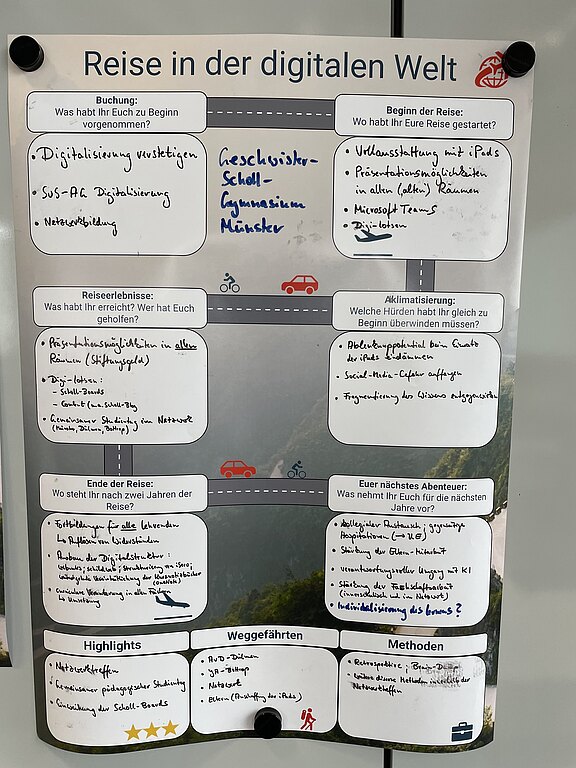 Reise in der digitalen Welt
Buchung:
Was habt Ihr Euch zu Beginn
vorgenommen?
• Digitalisierung verstetigen
• SuS-AG Digitalisierung
• Netzwerkbildung
Geschwister-
Scholl-
Gymnasium
Münster
Beginn der Reise:
Wo habt Ihr Eure Reise gestartet?
• Vollausstattung mit iPads
• Präsentationsmöglichkeiten
in allen (alten) Räumen
• Microsoft Teams
• Digi-lotsen
Reiseerlebnisse:
Was habt Ihr erreicht? Wer hat Euch
geholfen?
• Präsentationsmöglichkeiten in allen
Räumen (Stiftungsgeld)
• Digi-lotsen:
- Scholl-Boards
- Content (u.a. Scholl-Blog
• Gemeinsamer Studientag im Netzwerk
(Münster, Dülmen, Bottrop)
Aklimatisierung:
Welche Hürden habt Ihr gleich zu
Beginn überwinden müssen?
• Ablenkungspotential beim Einsatz
der iPads eindämmen
• Social-Media-Gefahr auffangen
• Fragmentierung des Wissens entgegenwirken
Ende der Reise:
Wo steht Ihr nach zwei Jahren der
Reise?
• Fortbildungen für alle lehrenden
↳ Auflösen von Widerständen
• Ausbau der Digitalstruktur:
• curriculare Verankerung in allen Fächern
↳ Umsetzung
Euer nächstes Abenteuer:
Was nehmt Ihr Euch für die nächsten
Jahre vor?
• Kollegialer Austausch; gegenseitige
Hospitationen (→ UE)
• Stärkung der Eltern-Mitarbeit
• verantwortungsvoller Umgang mit KI
• Stärkung der Fachschaftsarbeit
(innerschulisch und im Netzwerk)
• Individualisierung des Lernens?
Highlights
• Netzwerktreffen
• Gemeinsamer pädagogischer Studientag
• Einweihung der Scholl-Boards
Weggefährten
• AvD-Dülmen
• Bottrop
• Netzwerk
• Eltern (Anschaffung der iPads)
Methoden
• Retrospektive; Brain-Dump
• weitere diverse Methoden innerhalb der
Netzwerktreffen